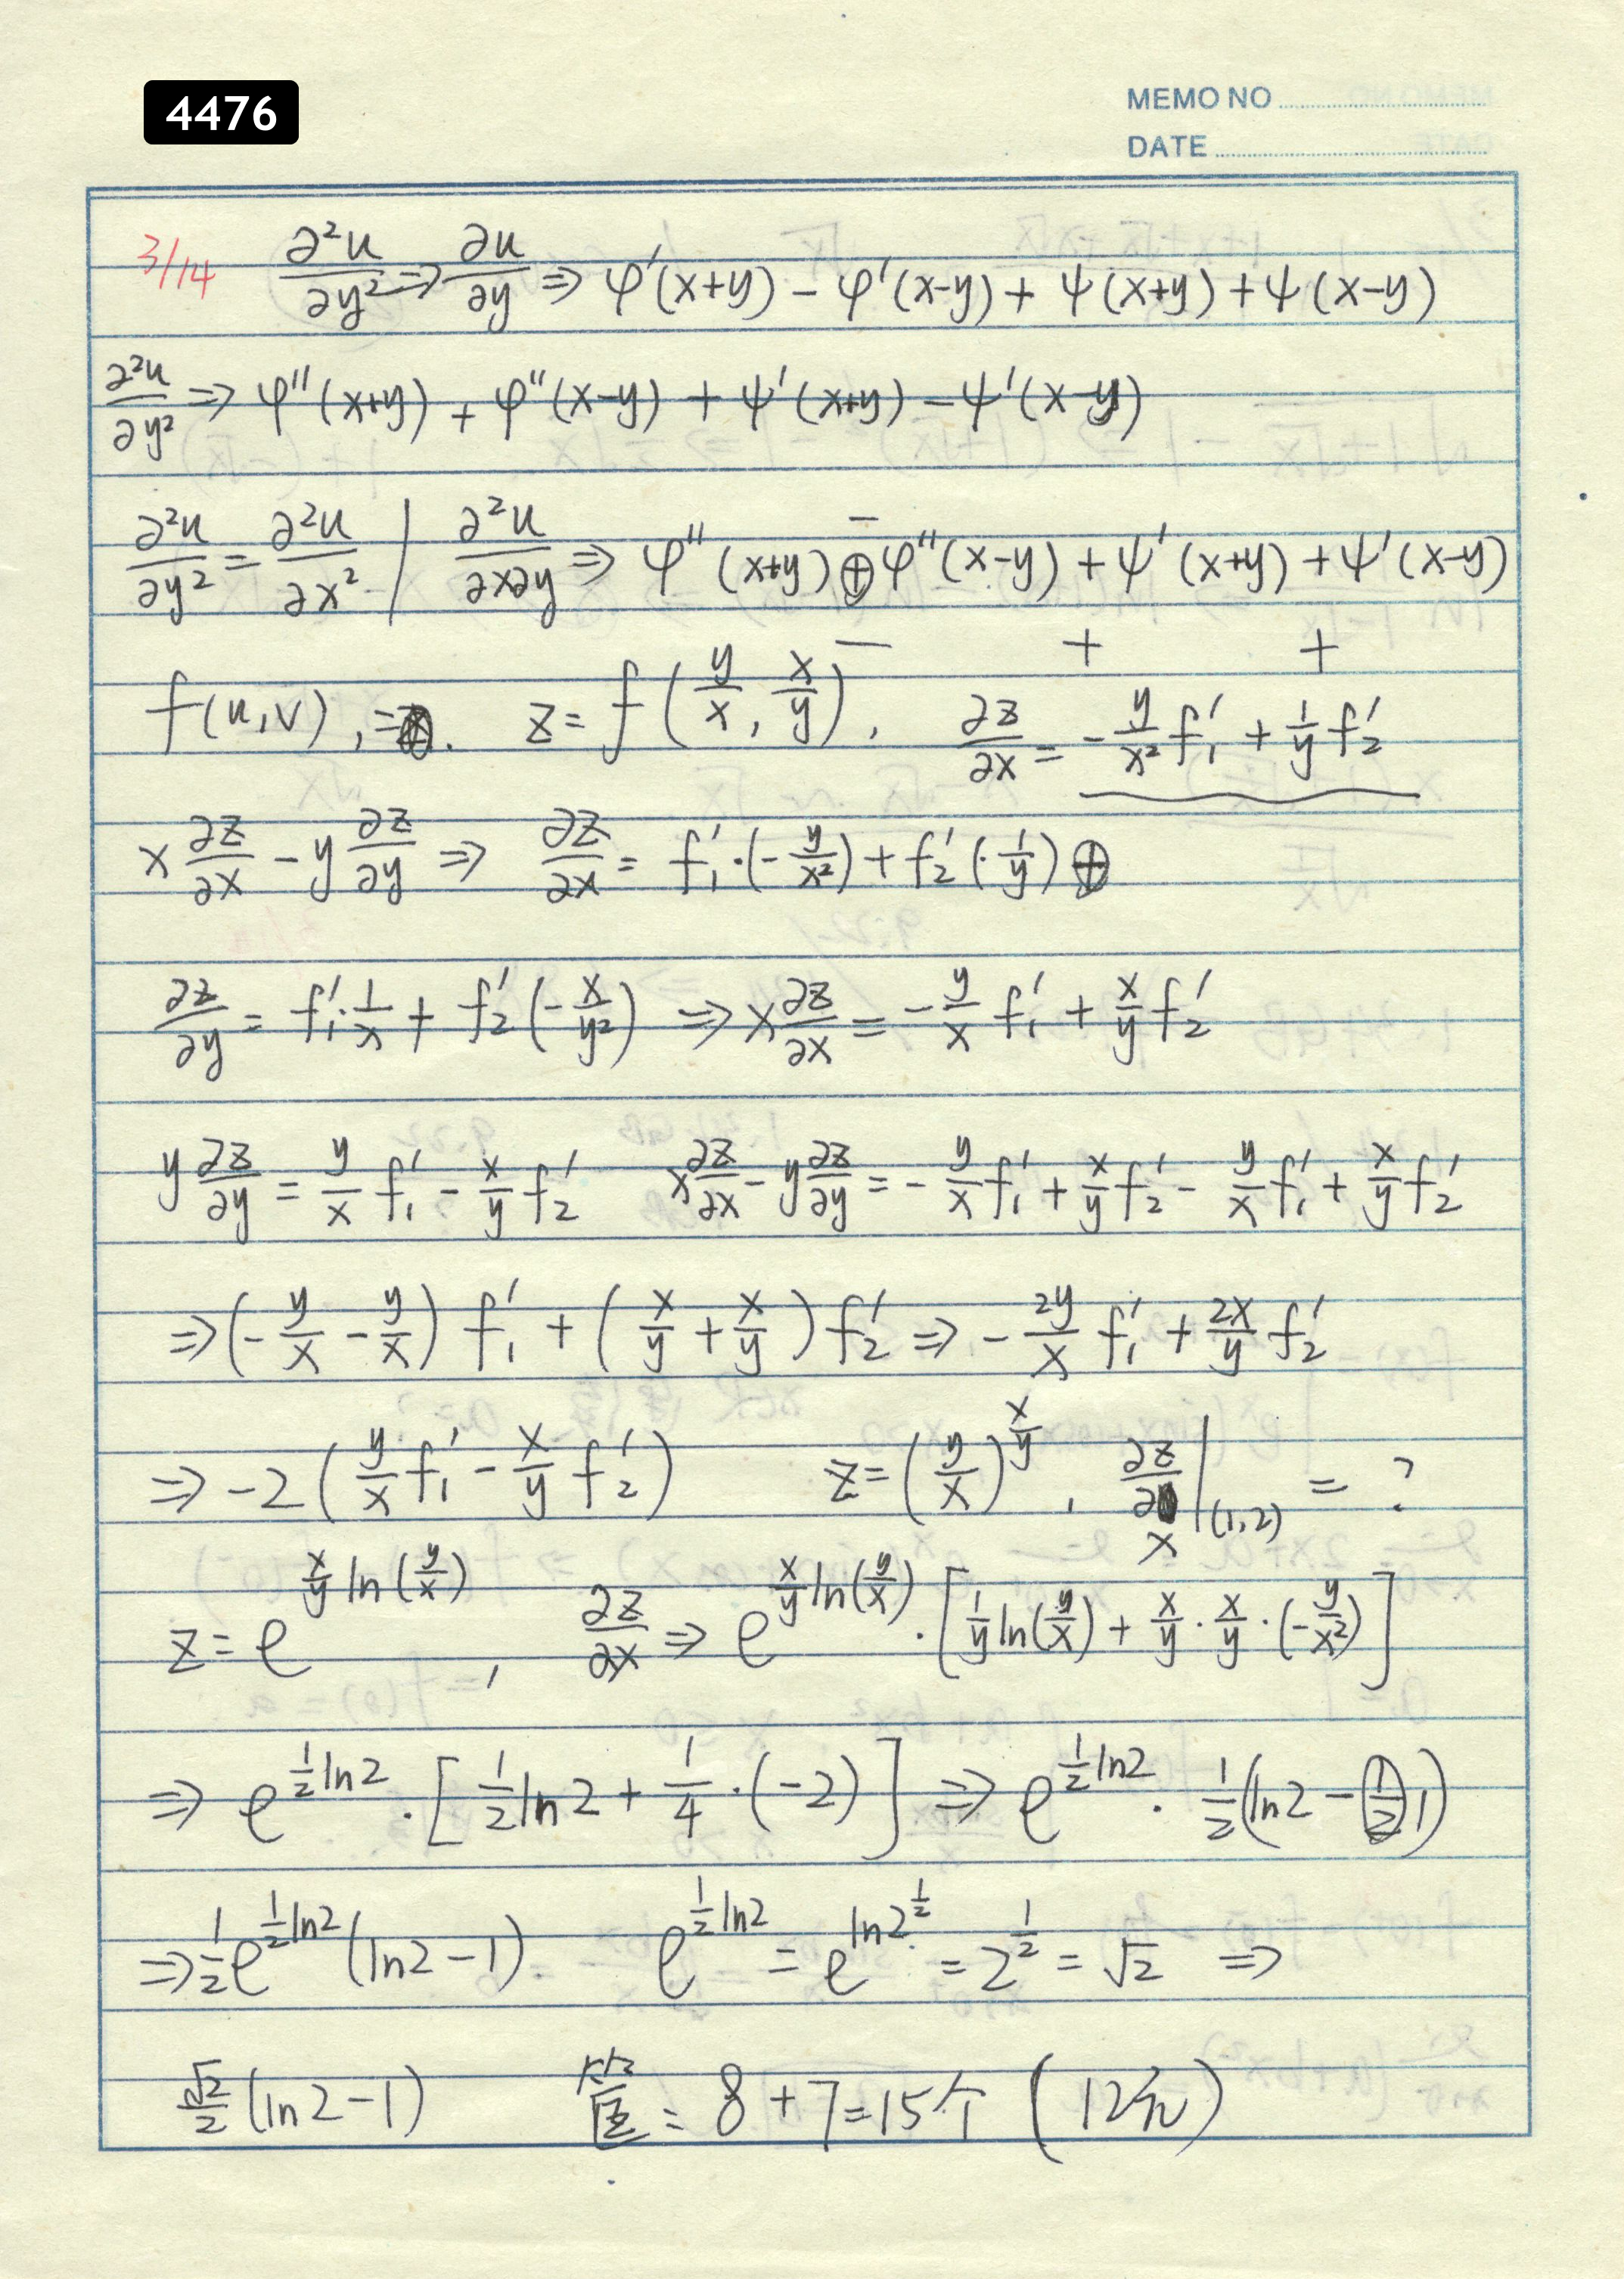 4476
MEMO NO
DATE
3/14 ∂²u/∂y² ⇒ ∂u/∂y ⇒ φ'(x+y) - φ'(x-y) + ψ(x+y) + ψ(x-y)
∂²u/∂y² ⇒ φ''(x+y) + φ''(x-y) + ψ'(x+y) - ψ'(x-y)
∂²u/∂y² = ∂²u/∂x² | ∂²u/∂x∂y ⇒ φ''(x+y) ⊕ φ''(x-y) + ψ'(x+y) + ψ'(x-y)
− + +
f(u,v), z = f(y/x, x/y), ∂z/∂x = -y/x² f₁' + 1/y f₂'
x ∂z/∂x - y ∂z/∂y ⇒ ∂z/∂x = f₁'·(-y/x²) + f₂'(·1/y) ⊕
∂z/∂y = f₁'·1/x + f₂'(-x/y²) ⇒ x ∂z/∂x = -y/x f₁' + x/y f₂'
y ∂z/∂y = y/x f₁' - x/y f₂' x ∂z/∂x - y ∂z/∂y = -y/x f₁' + x/y f₂' - y/x f₁' + x/y f₂'
⇒ (-y/x - y/x) f₁' + (x/y + x/y) f₂' ⇒ -2y/x f₁' + 2x/y f₂'
⇒ -2(y/x f₁' - x/y f₂') z = (y/x)^(x/y), ∂z/∂x |(1,2) = ?
z = e^(x/y ln(y/x)), ∂z/∂x ⇒ e^(x/y ln(y/x)) · [1/y ln(y/x) + x/y · x/y · (-y/x²)]
⇒ e^(1/2 ln2) · [1/2 ln2 + 1/4 · (-2)] ⇒ e^(1/2 ln2) · 1/2 (ln2 - 1)
⇒ 1/2 e^(1/2 ln2) (ln2 - 1) e^(1/2 ln2) = e^(ln2^(1/2)) = 2^(1/2) = √2 ⇒
√2/2 (ln2 - 1) = 8 + 7 = 15个 (12元)